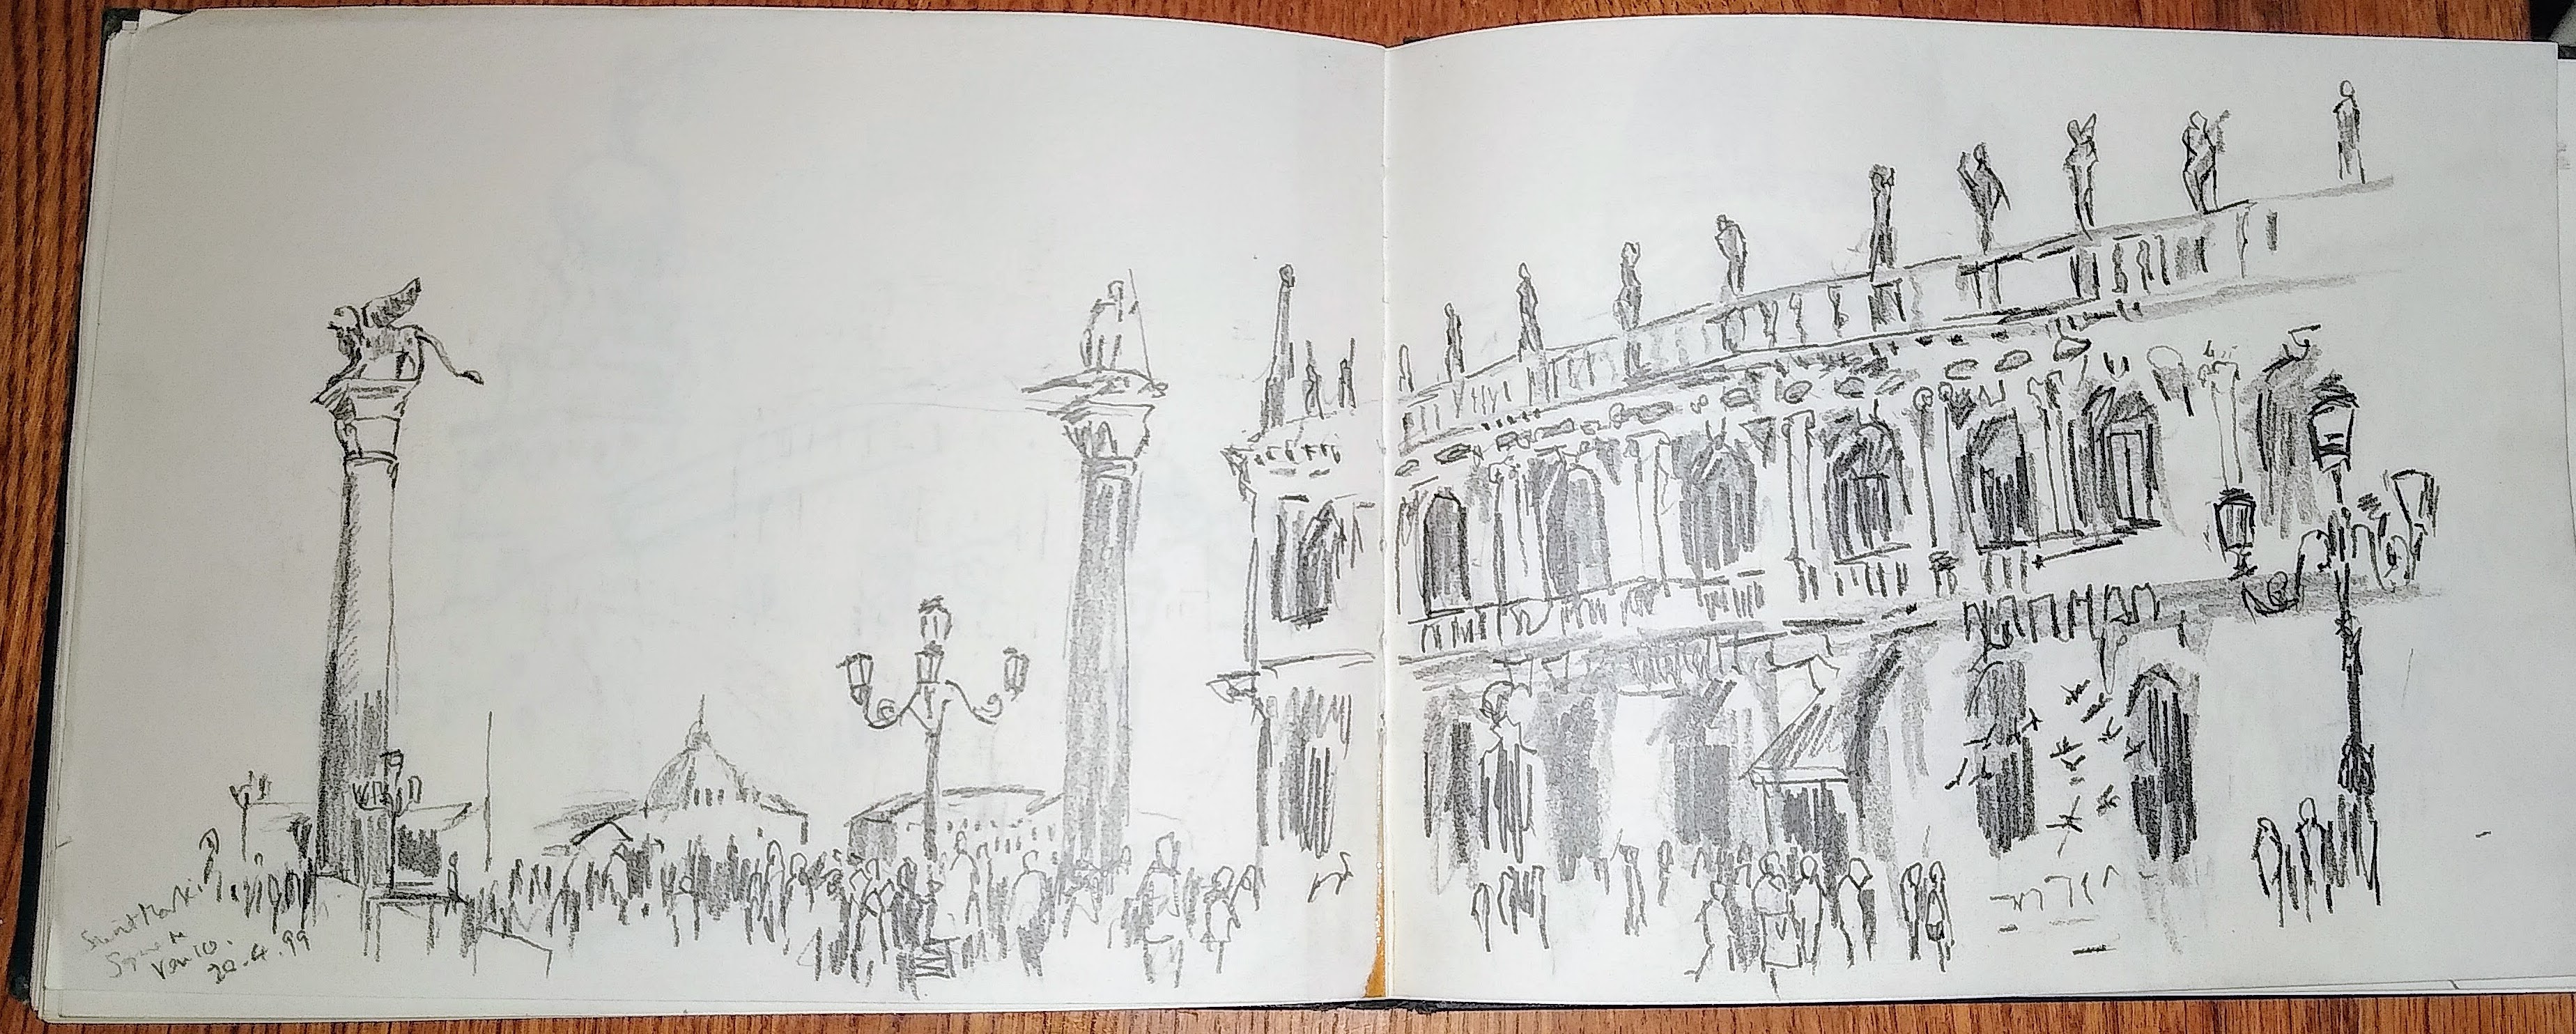 Saint Mark's
Square
Venice.
20.4.99